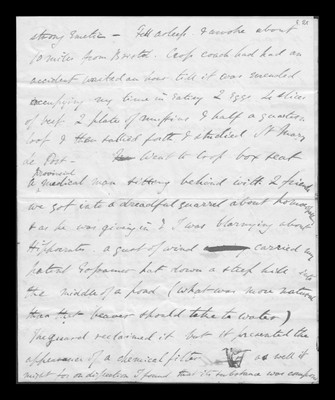 strong Emetic — Fell asleep & awoke about
10 miles from Bristol. Coop coach had had an
accident waited an hour till it was mended
occupying my time in Eating 2 Eggs 20 slices
of beef 2 plate of muffins & half a quartern
loaf & then sallied forth & studied St Mary
de Post — I went to loop box seat
Provincial
a medical man sitting behind with 2 friends
we got into a dreadful quarrel about
& as he was giving in & I was blarnying about
Hippocrates a gust of wind carried my
patent Gossamer hat down a steep hill into
the middle of a pond (what was more natural
than that beaver should take to water)
Jacquard reclaimed it but it presented the
appearance of a chemical filter as well it
might for on dissection I found that its substance was